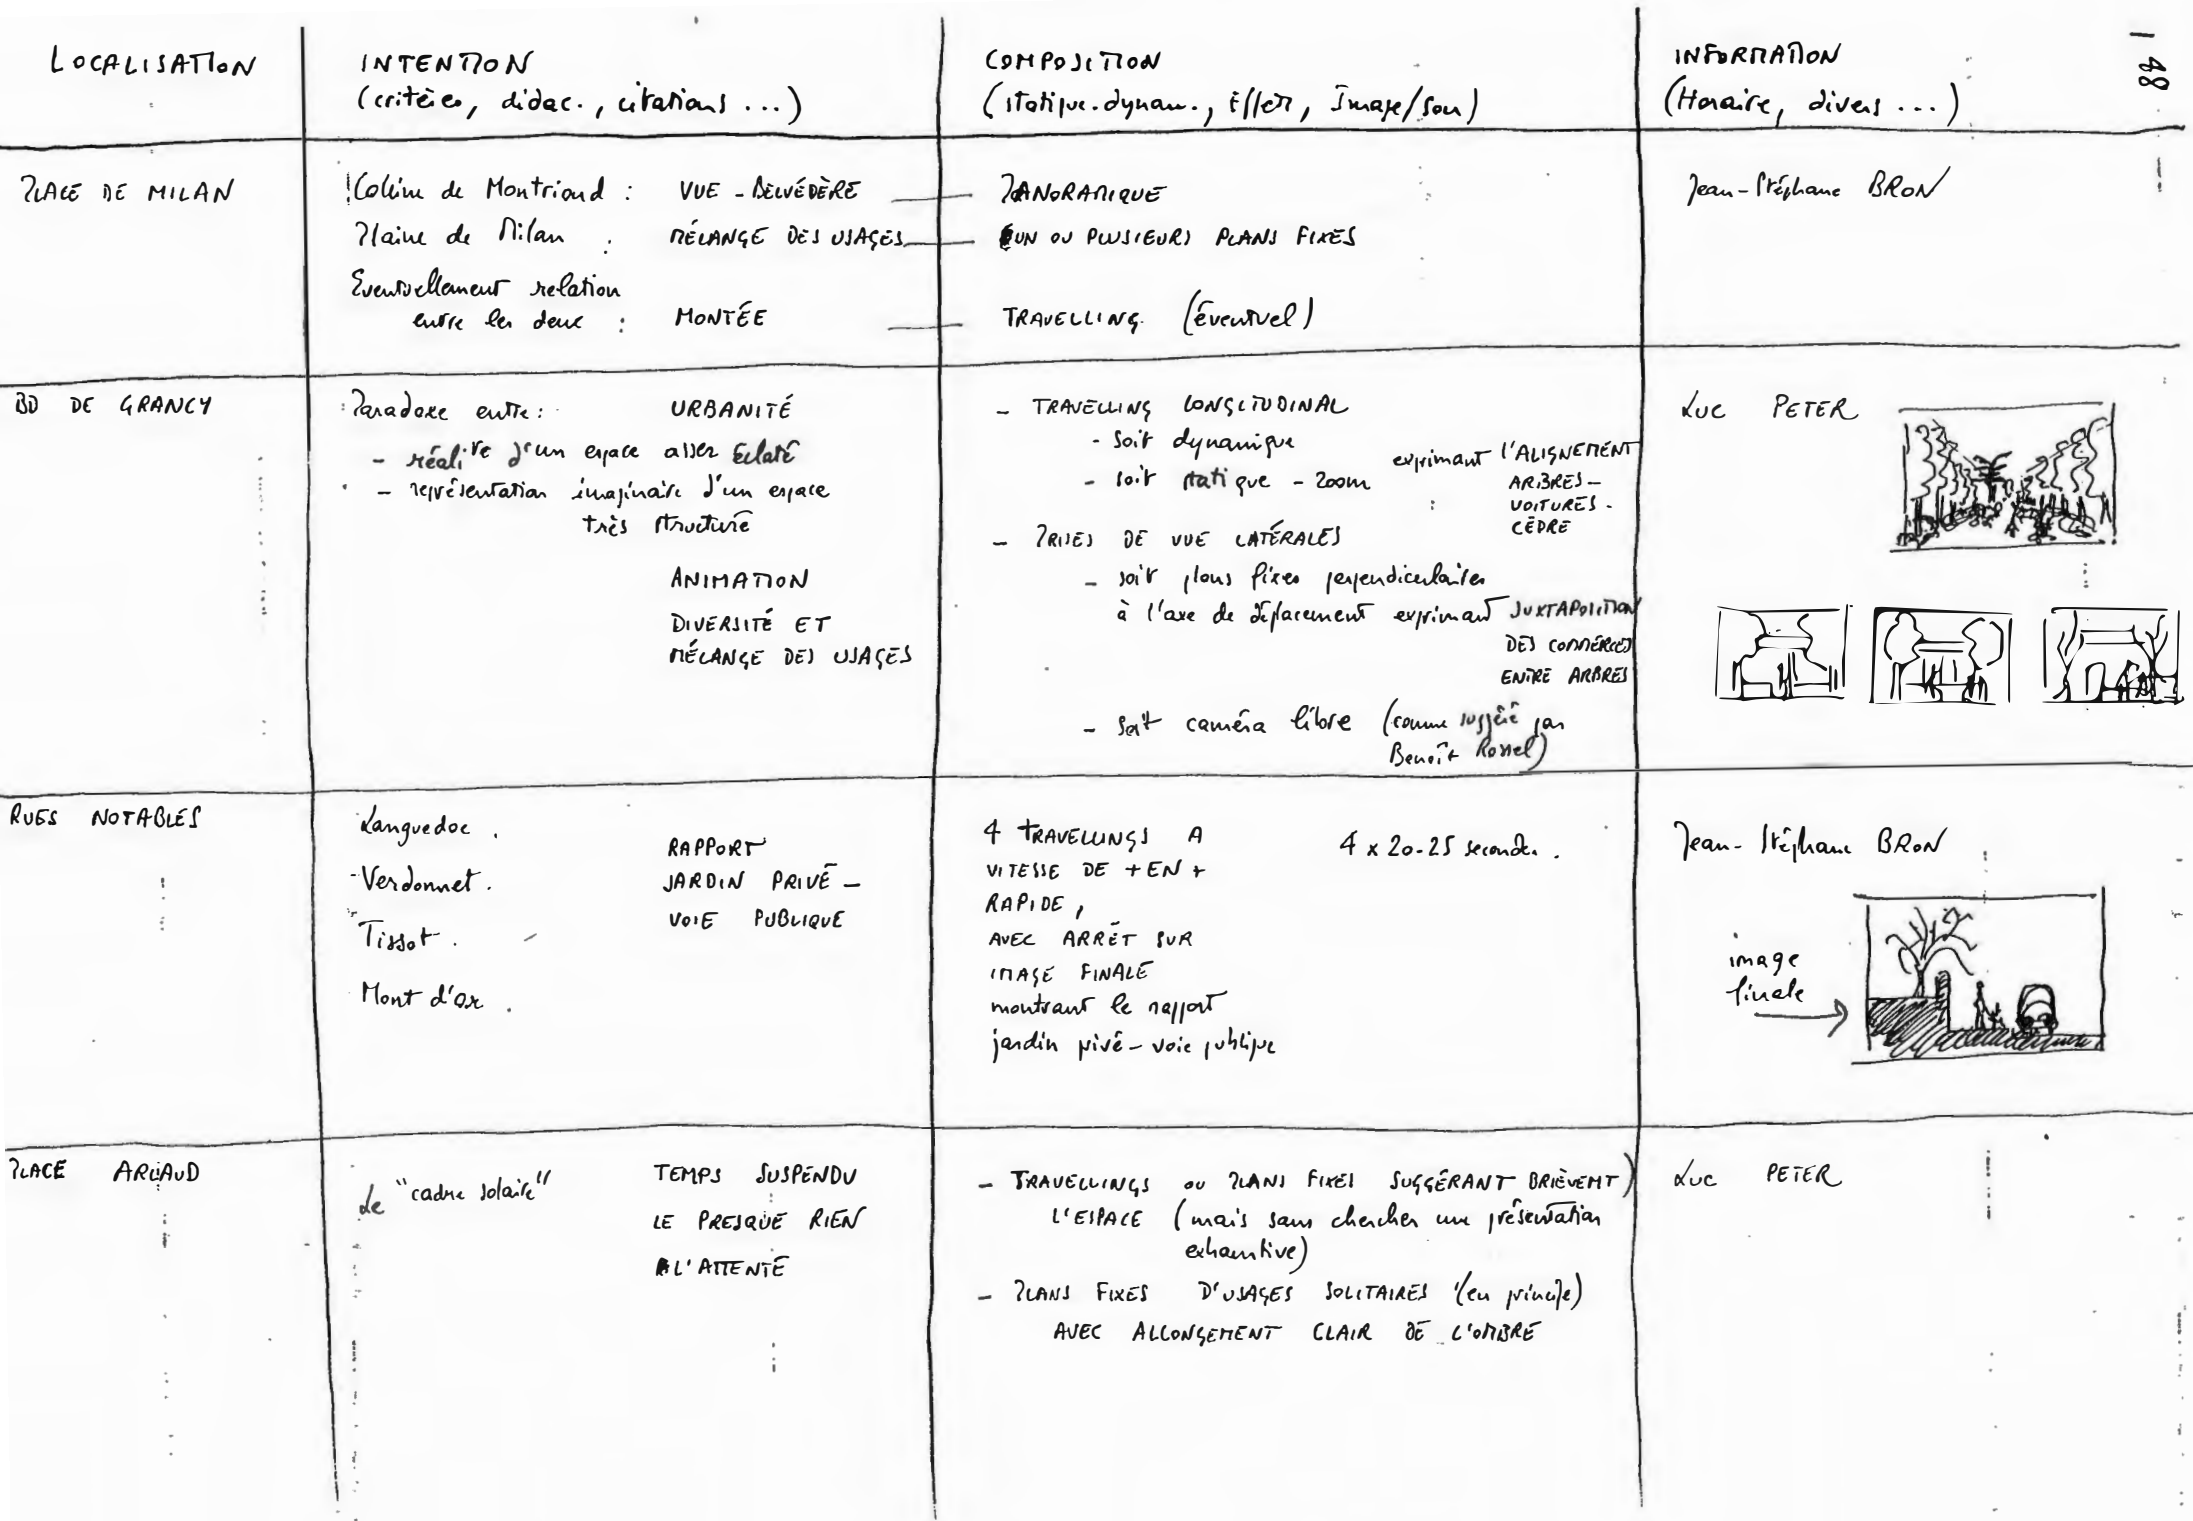 LOCALISATION
INTENTION
(critères, didac., citations ...)
COMPOSITION
(statique.dynam., Effets, Image/son)
INFORMATION
(Horaire, divers ...)
48
PLACE DE MILAN
Colline de Montriond : VUE - BELVÉDÈRE
Plaine de Milan : MÉLANGE DES USAGES
Eventuellement relation
entre les deux : MONTÉE
PANORAMIQUE
UN OU PLUSIEURS PLANS FIXES
TRAVELLING (éventuel)
Jean-Stéphane BRON
BD DE GRANCY
Paradoxe entre : URBANITÉ
- réalité d'un espace assez éclaté
- représentation imaginaire d'un espace
très structuré
ANIMATION
DIVERSITÉ ET
MÉLANGE DES USAGES
- TRAVELLING LONGITUDINAL
- soit dynamique
- soit statique - zoom
exprimant l'ALIGNEMENT
ARBRES -
VOITURES -
CÈDRE
- PRISES DE VUE LATÉRALES
- soit plans fixes perpendiculaires
à l'axe de déplacement exprimant JUXTAPOSITION
DES COMMERCES
ENTRE ARBRES
- soit caméra libre (comme suggéré par
Benoît Rossel)
Luc PETER
RUES NOTABLES
Languedoc .
- Verdonnet .
Tissot .
Mont d'or .
RAPPORT
JARDIN PRIVÉ -
VOIE PUBLIQUE
4 TRAVELLINGS A
VITESSE DE + EN +
RAPIDE,
AVEC ARRÊT SUR
IMAGE FINALE
montrant le rapport
jardin privé - voie publique
4 x 20-25 secondes.
Jean-Stéphane BRON
image
finale
PLACE ARLAUD
Le "cadre solaire"
TEMPS SUSPENDU
LE PRESQUE RIEN
L'ATTENTE
- TRAVELLINGS OU PLANS FIXES SUGGÉRANT BRIÈVEMT)
L'ESPACE (mais sans chercher une présentation
exhaustive)
- PLANS FIXES D'USAGES SOLITAIRES (en principe)
AVEC ALLONGEMENT CLAIR DE L'OMBRE
Luc PETER